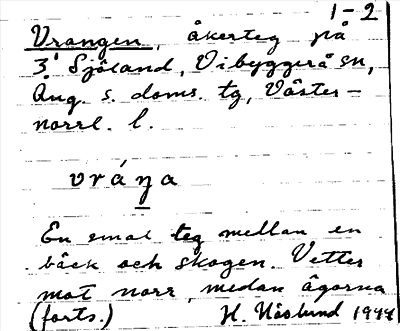 1-2
Vrangen, åkerteg på
3 Själand, Vibyggerå sn,
Ång. s. doms. tg, Väster-
norrl. l.
vráŋa
En smal teg mellan en
bäck och skogen. Vetter
mot norr, medan ägorna
(forts.) H. Näslund 1944